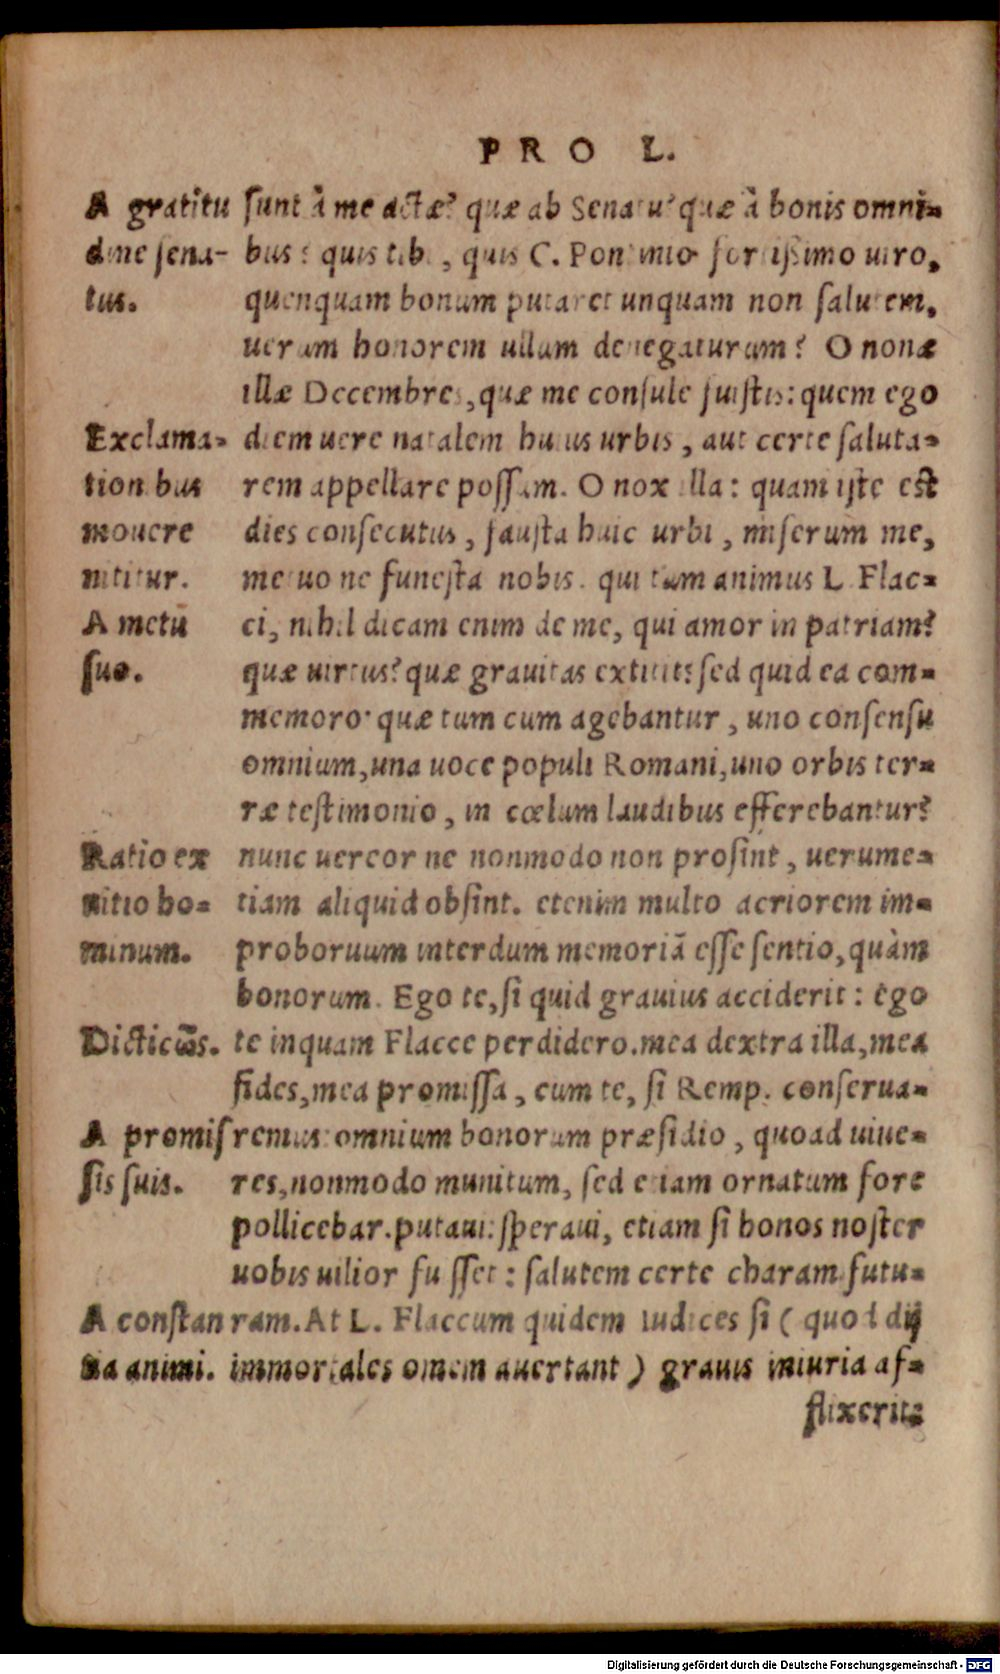 PRO L.
A gratitu
dine sena-
tus.
sunt à me actæ? quæ ab Senatu? quæ à bonis omni-
bus? quis tibi, quis C. Pontinio fortissimo uiro,
quenquam bonum putaret unquam non salutem,
uerum honorem ullum denegaturum? O nonæ
illæ Decembres, quæ me consule fuistis: quem ego
Exclama-
tionibus
mouere
nititur.
A metu
suo.
diem uere natalem huius urbis, aut certe saluta-
rem appellare possum. O nox illa: quam iste est
dies consecutus, fausta huic urbi, miserum me,
metuo ne funesta nobis. qui tum animus L. Flac-
ci, nihil dicam enim de me, qui amor in patriam?
quæ uirtus? quæ grauitas extitit? sed quid ea com-
memoro? quæ tum cum agebantur, uno consensu
omnium, una uoce populi Romani, uno orbis ter-
ræ testimonio, in cœlum laudibus efferebantur?
Ratio ex
uitio ho-
minum.
nunc uereor ne nonmodo non prosint, uerume-
tiam aliquid obsint. etenim multo acriorem im-
proboruum interdum memoriã esse sentio, quàm
bonorum. Ego te, si quid grauius acciderit: ego
te inquam Flacce perdidero. mea dextra illa, mea
fides, mea promissa, cum te, si Remp. conserua-
A promis
sis suis.
remus: omnium bonorum præsidio, quoad uiue-
res, nonmodo munitum, sed etiam ornatum fore
pollicebar. putaui: speraui, etiam si honos noster
uobis uilior fuisset: salutem certe charam futu-
A constan
tia animi.
ram. At L. Flaccum quidem iudices si (quod dij
immortales omen auertant) grauis iniuria af-
flixerit:
Digitalisierung gefördert durch die Deutsche Forschungsgemeinschaft - DFG